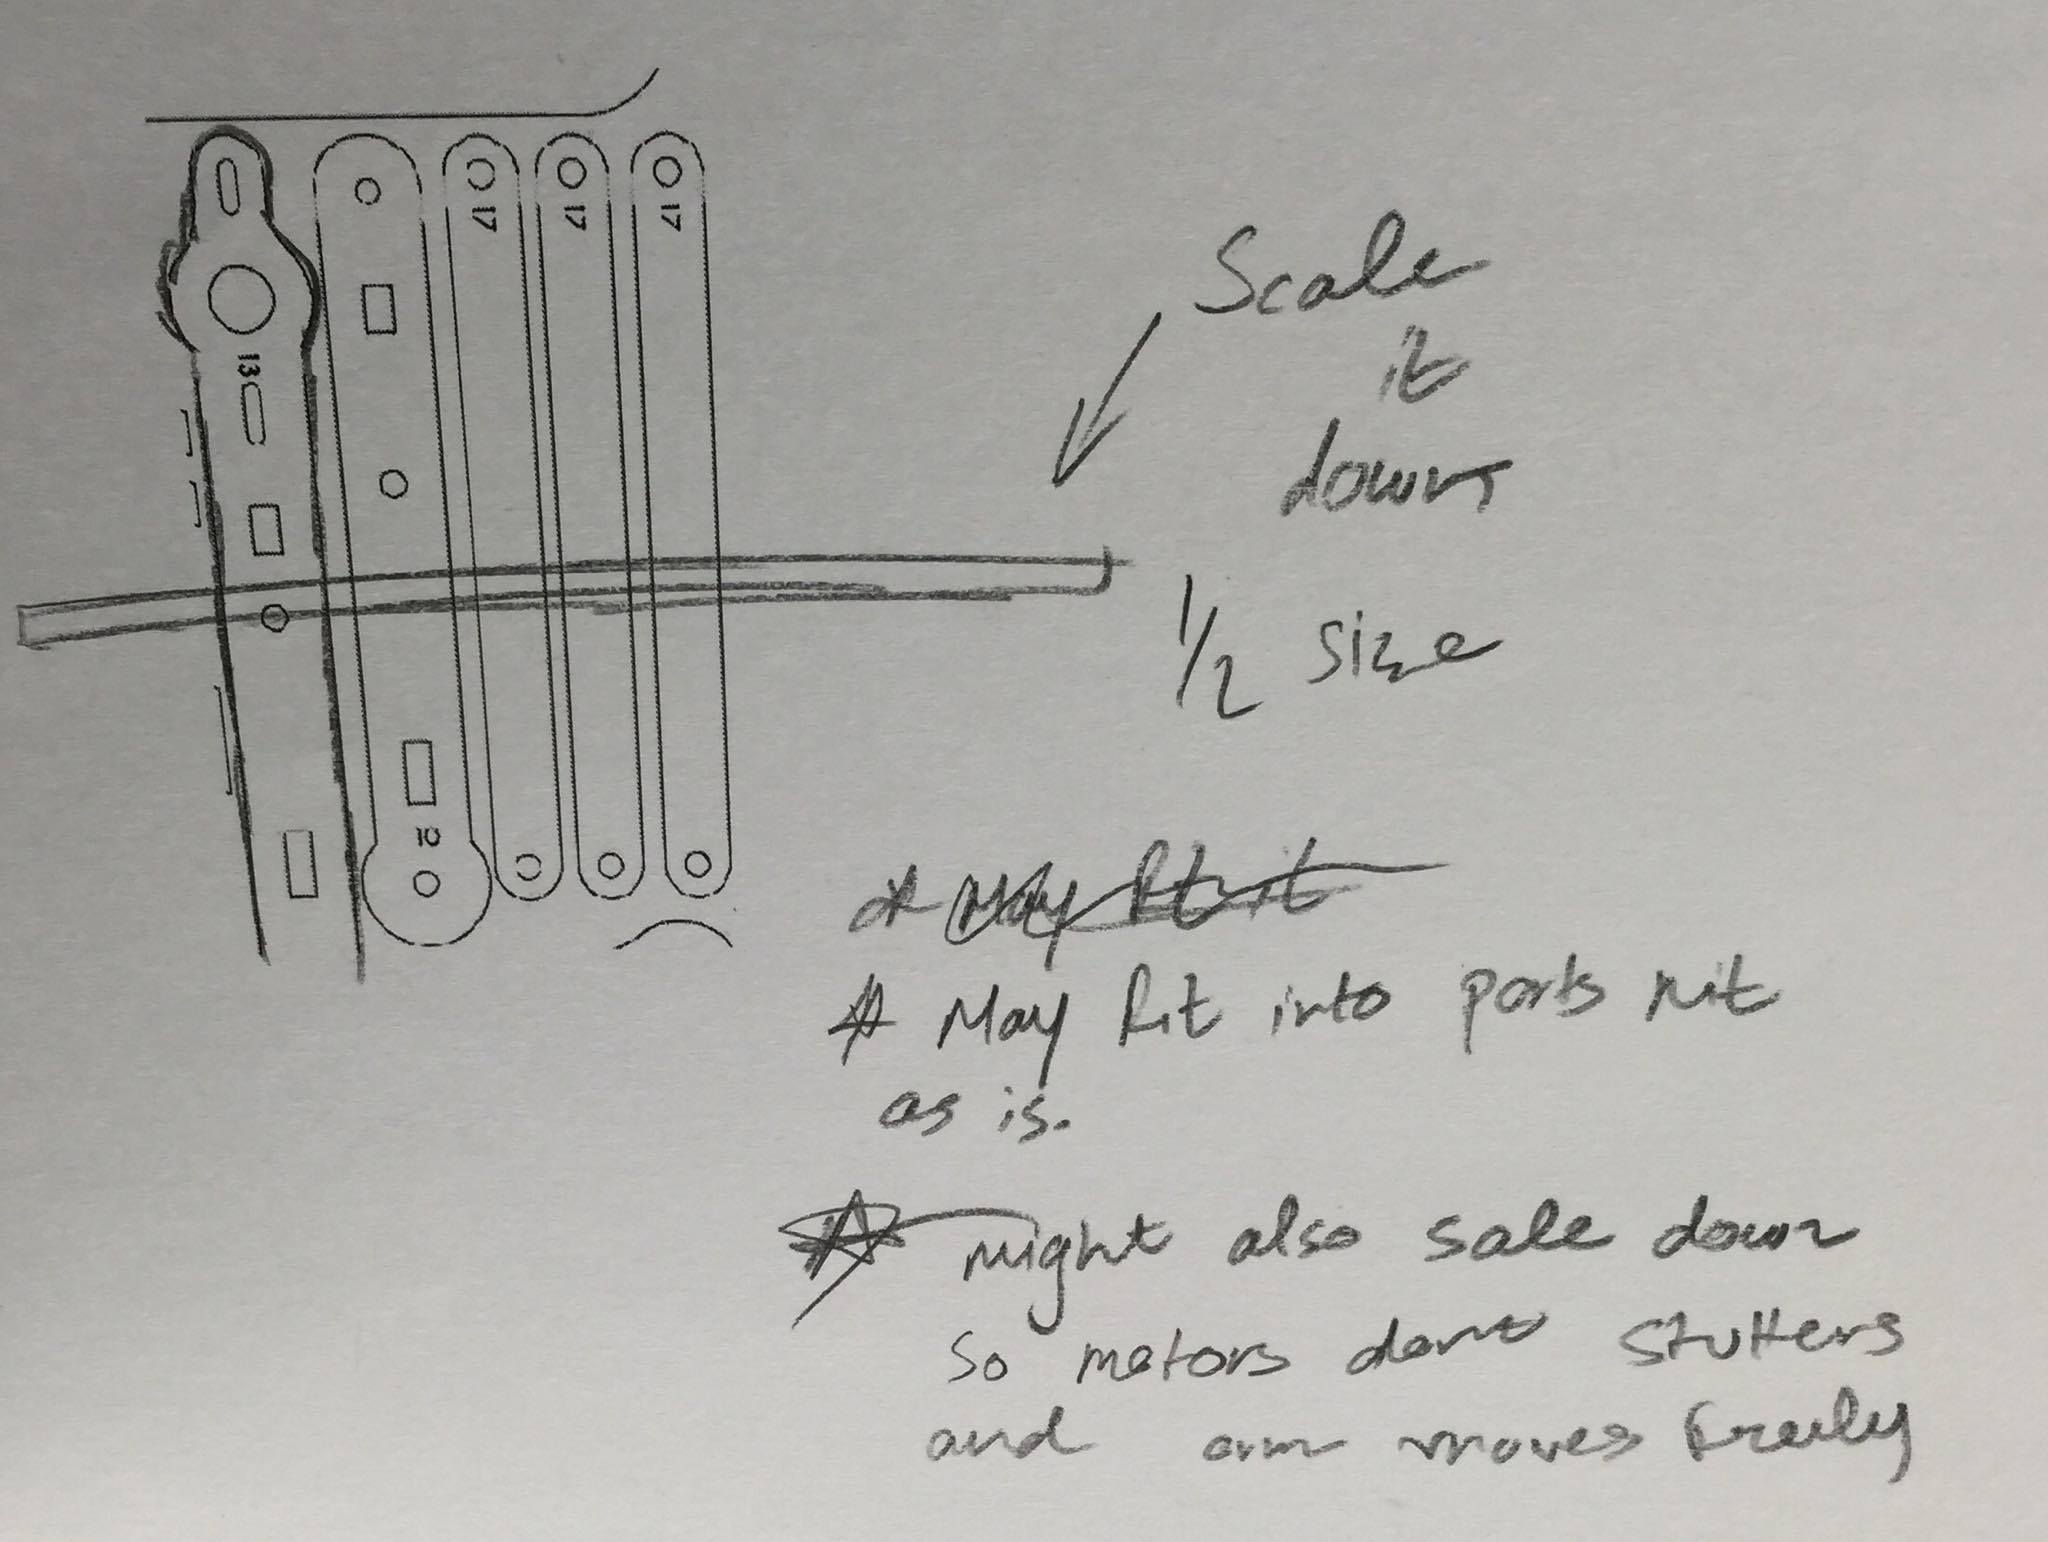 17
17
17
13
10
Scale
it
down
1/2 size
* May fit it
* May fit into ports kit
as is.
might also sale down
so motors dont stutters
and arm moves freely